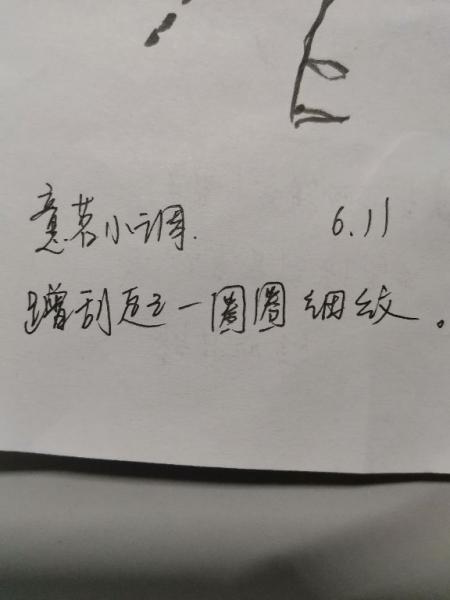 意若小调. 6.11
蹭刮起一圈圈细纹。